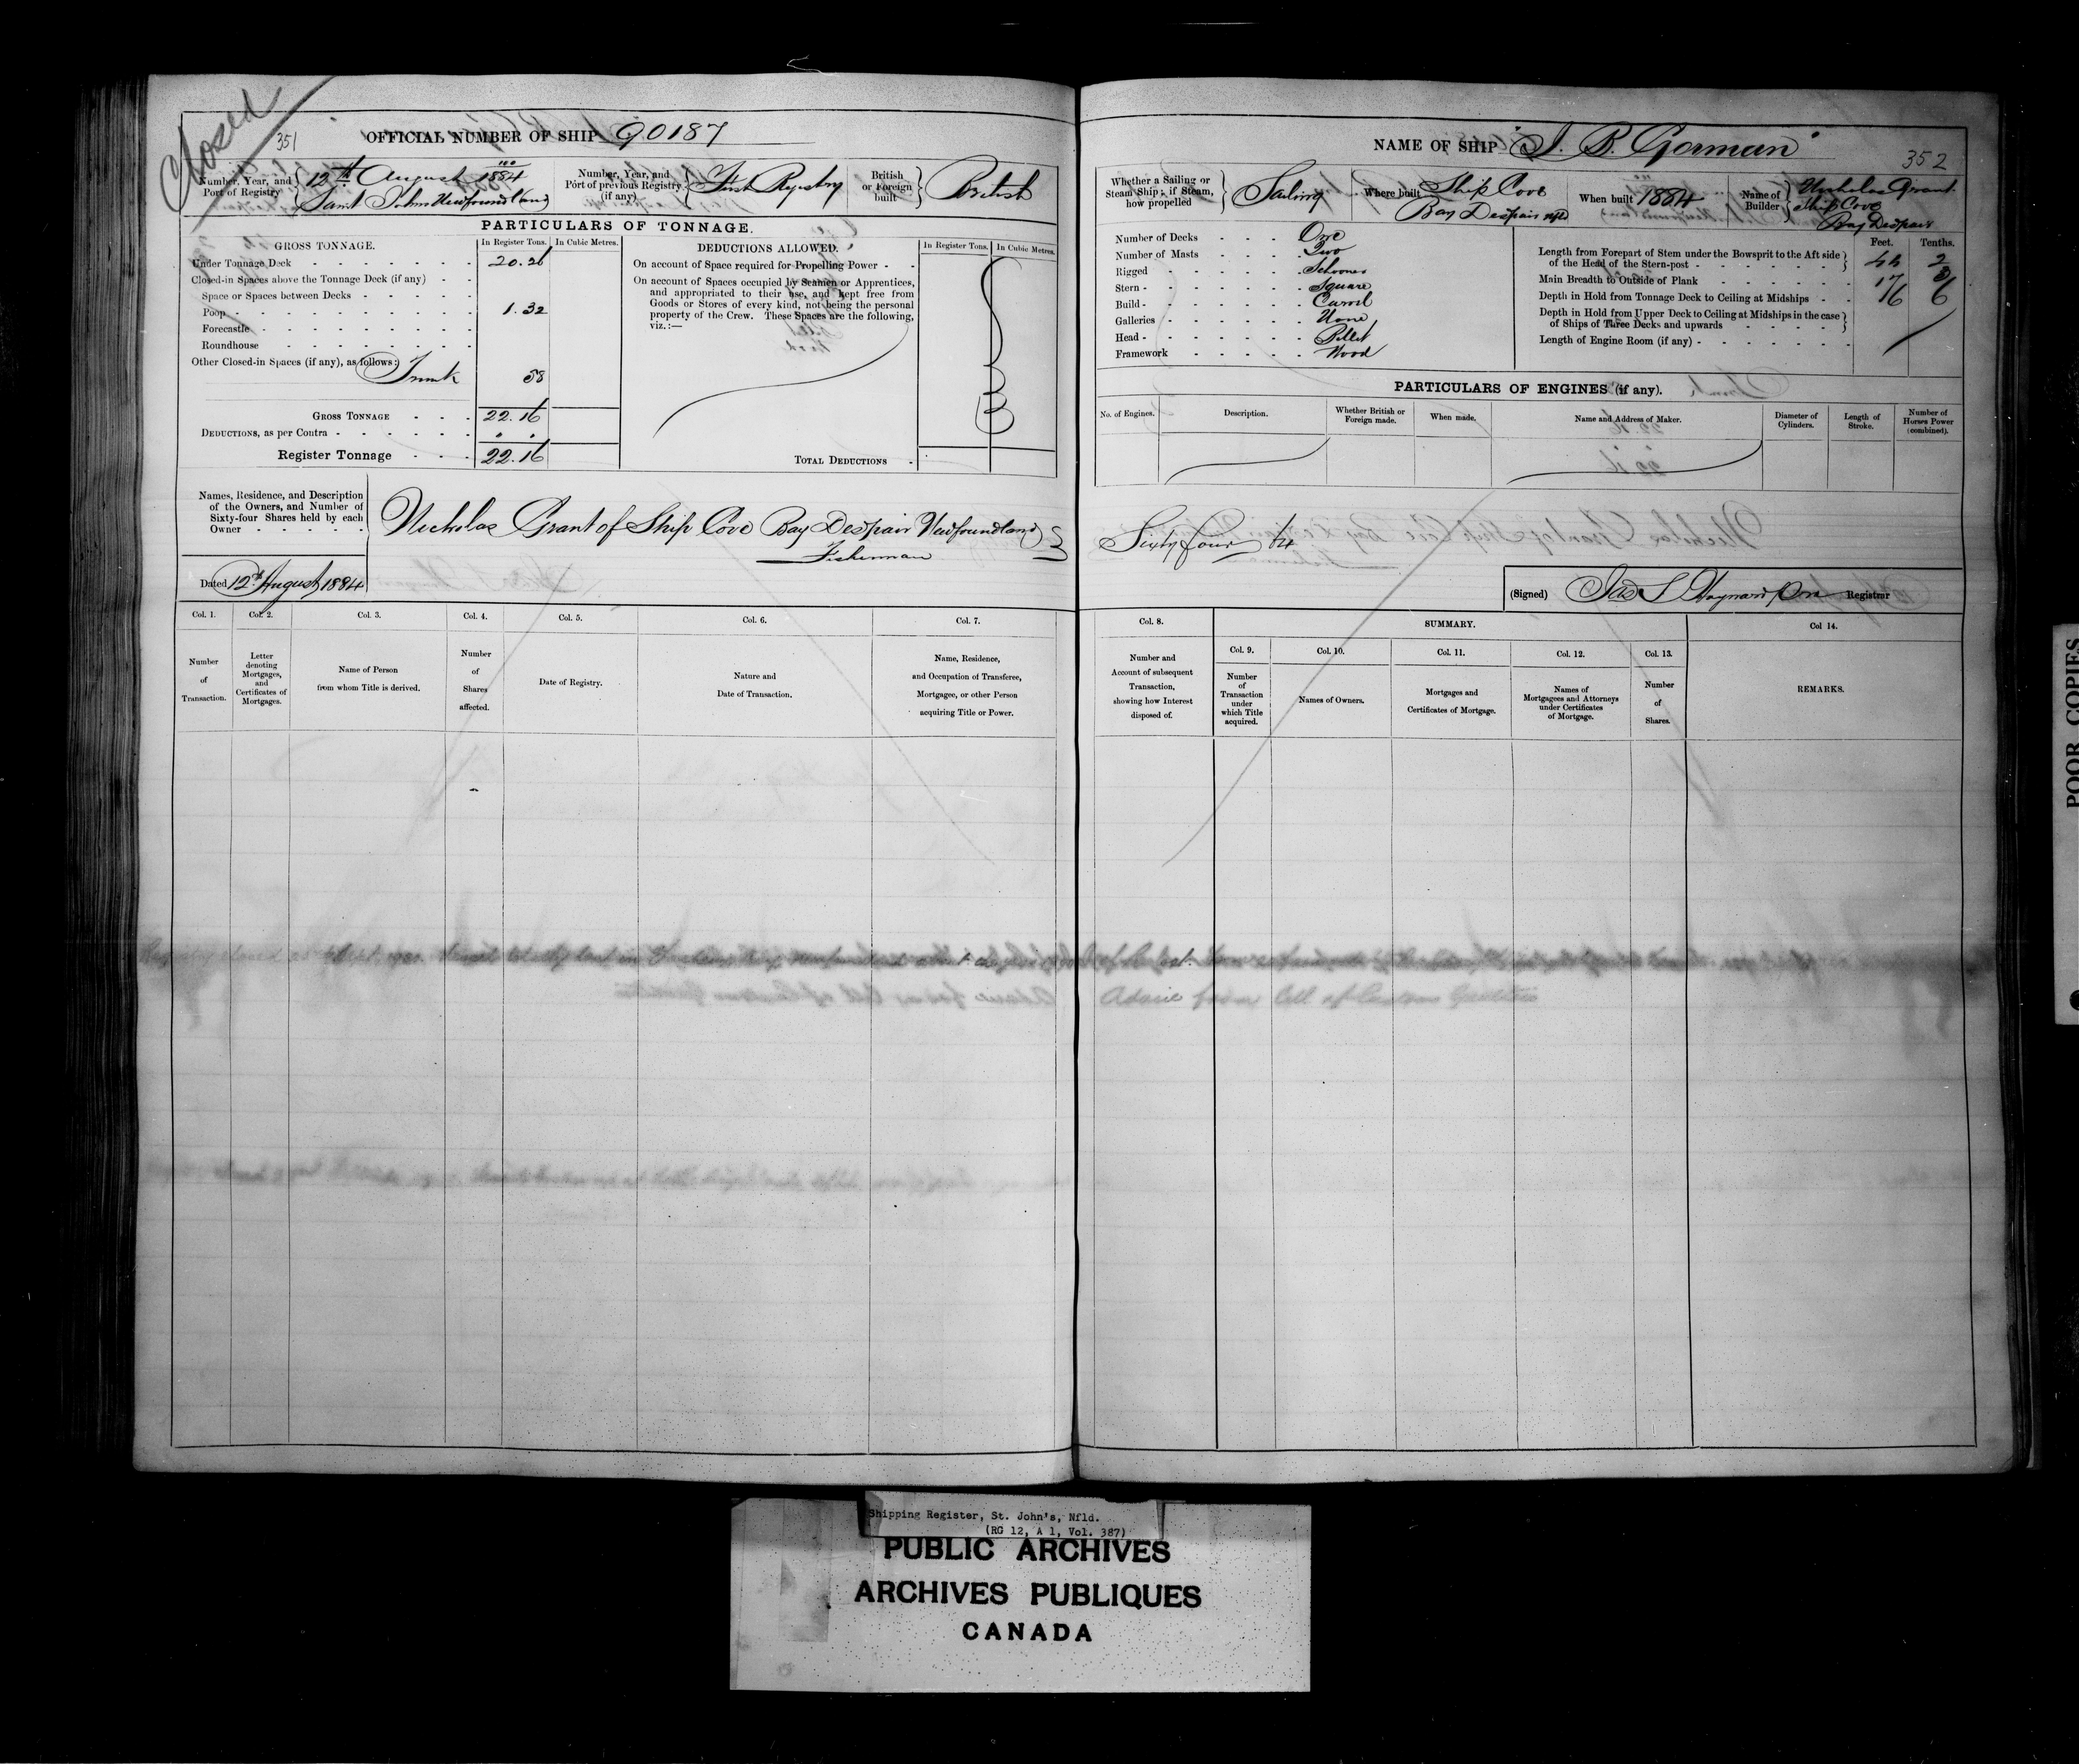 Closed
351
OFFICIAL NUMBER OF SHIP 90187
Number, Year, and Port of Registry 12th August 1884
Saint Johns Newfoundland
Number, Year, and Port of previous Registry (if any) First Registry
British or Foreign built British
PARTICULARS OF TONNAGE.
GROSS TONNAGE. In Register Tons. In Cubic Metres.
Under Tonnage Deck 20.26
Closed-in Spaces above the Tonnage Deck (if any)
Space or Spaces between Decks
Poop 1.32
Forecastle
Roundhouse
Other Closed-in Spaces (if any), as follows: Trunk 58
GROSS TONNAGE 22.16
DEDUCTIONS, as per Contra " "
Register Tonnage 22.16
DEDUCTIONS ALLOWED. In Register Tons. In Cubic Metres.
On account of Space required for Propelling Power
On account of Spaces occupied by Seamen or Apprentices,
and appropriated to their use, and kept free from
Goods or Stores of every kind, not being the personal
property of the Crew. These Spaces are the following,
viz.:—
TOTAL DEDUCTIONS
Names, Residence, and Description
of the Owners, and Number of
Sixty-four Shares held by each
Owner
Nicholas Grant of Ship Cove Bay Despair Newfoundland
Fisherman
Dated 12th August 1884
Col. 1. Col. 2. Col. 3. Col. 4. Col. 5. Col. 6. Col. 7.
Number of Transaction.
Letter denoting Mortgages, and Certificates of Mortgages.
Name of Person from whom Title is derived.
Number of Shares affected.
Date of Registry.
Nature and Date of Transaction.
Name, Residence, and Occupation of Transferee, Mortgagee, or other Person acquiring Title or Power.
NAME OF SHIP "J. B. Gorman"
352
Whether a Sailing or Steam Ship; if Steam, how propelled Sailing
Where built Ship Cove
Bay Despair Nfld
When built 1884
Name of Builder Nicholas Grant
Ship Cove
Bay Despair
Number of Decks One
Number of Masts Two
Rigged Schooner
Stern Square
Build Carvel
Galleries None
Head Billet
Framework Wood
Feet. Tenths.
Length from Forepart of Stem under the Bowsprit to the Aft side
of the Head of the Stern-post 2
Main Breadth to Outside of Plank 17
Depth in Hold from Tonnage Deck to Ceiling at Midships 6 6
Depth in Hold from Upper Deck to Ceiling at Midships in the case
of Ships of Three Decks and upwards
Length of Engine Room (if any)
PARTICULARS OF ENGINES (if any).
No. of Engines. Description. Whether British or Foreign made. When made. Name and Address of Maker. Diameter of Cylinders. Length of Stroke. Number of Horses Power (combined).
Sixty four 64
(Signed) Registrar
Col. 8. SUMMARY. Col 14.
Col. 9. Col. 10. Col. 11. Col. 12. Col. 13.
Number and Account of subsequent Transaction, showing how Interest disposed of.
Number of Transaction under which Title acquired.
Names of Owners.
Mortgages and Certificates of Mortgage.
Names of Mortgagees and Attorneys under Certificates of Mortgage.
Number of Shares.
REMARKS.
Advice from
POOR COPIES
Shipping Register, St. John's, Nfld.
(RG 12, A 1, Vol. 387)
PUBLIC ARCHIVES
ARCHIVES PUBLIQUES
CANADA